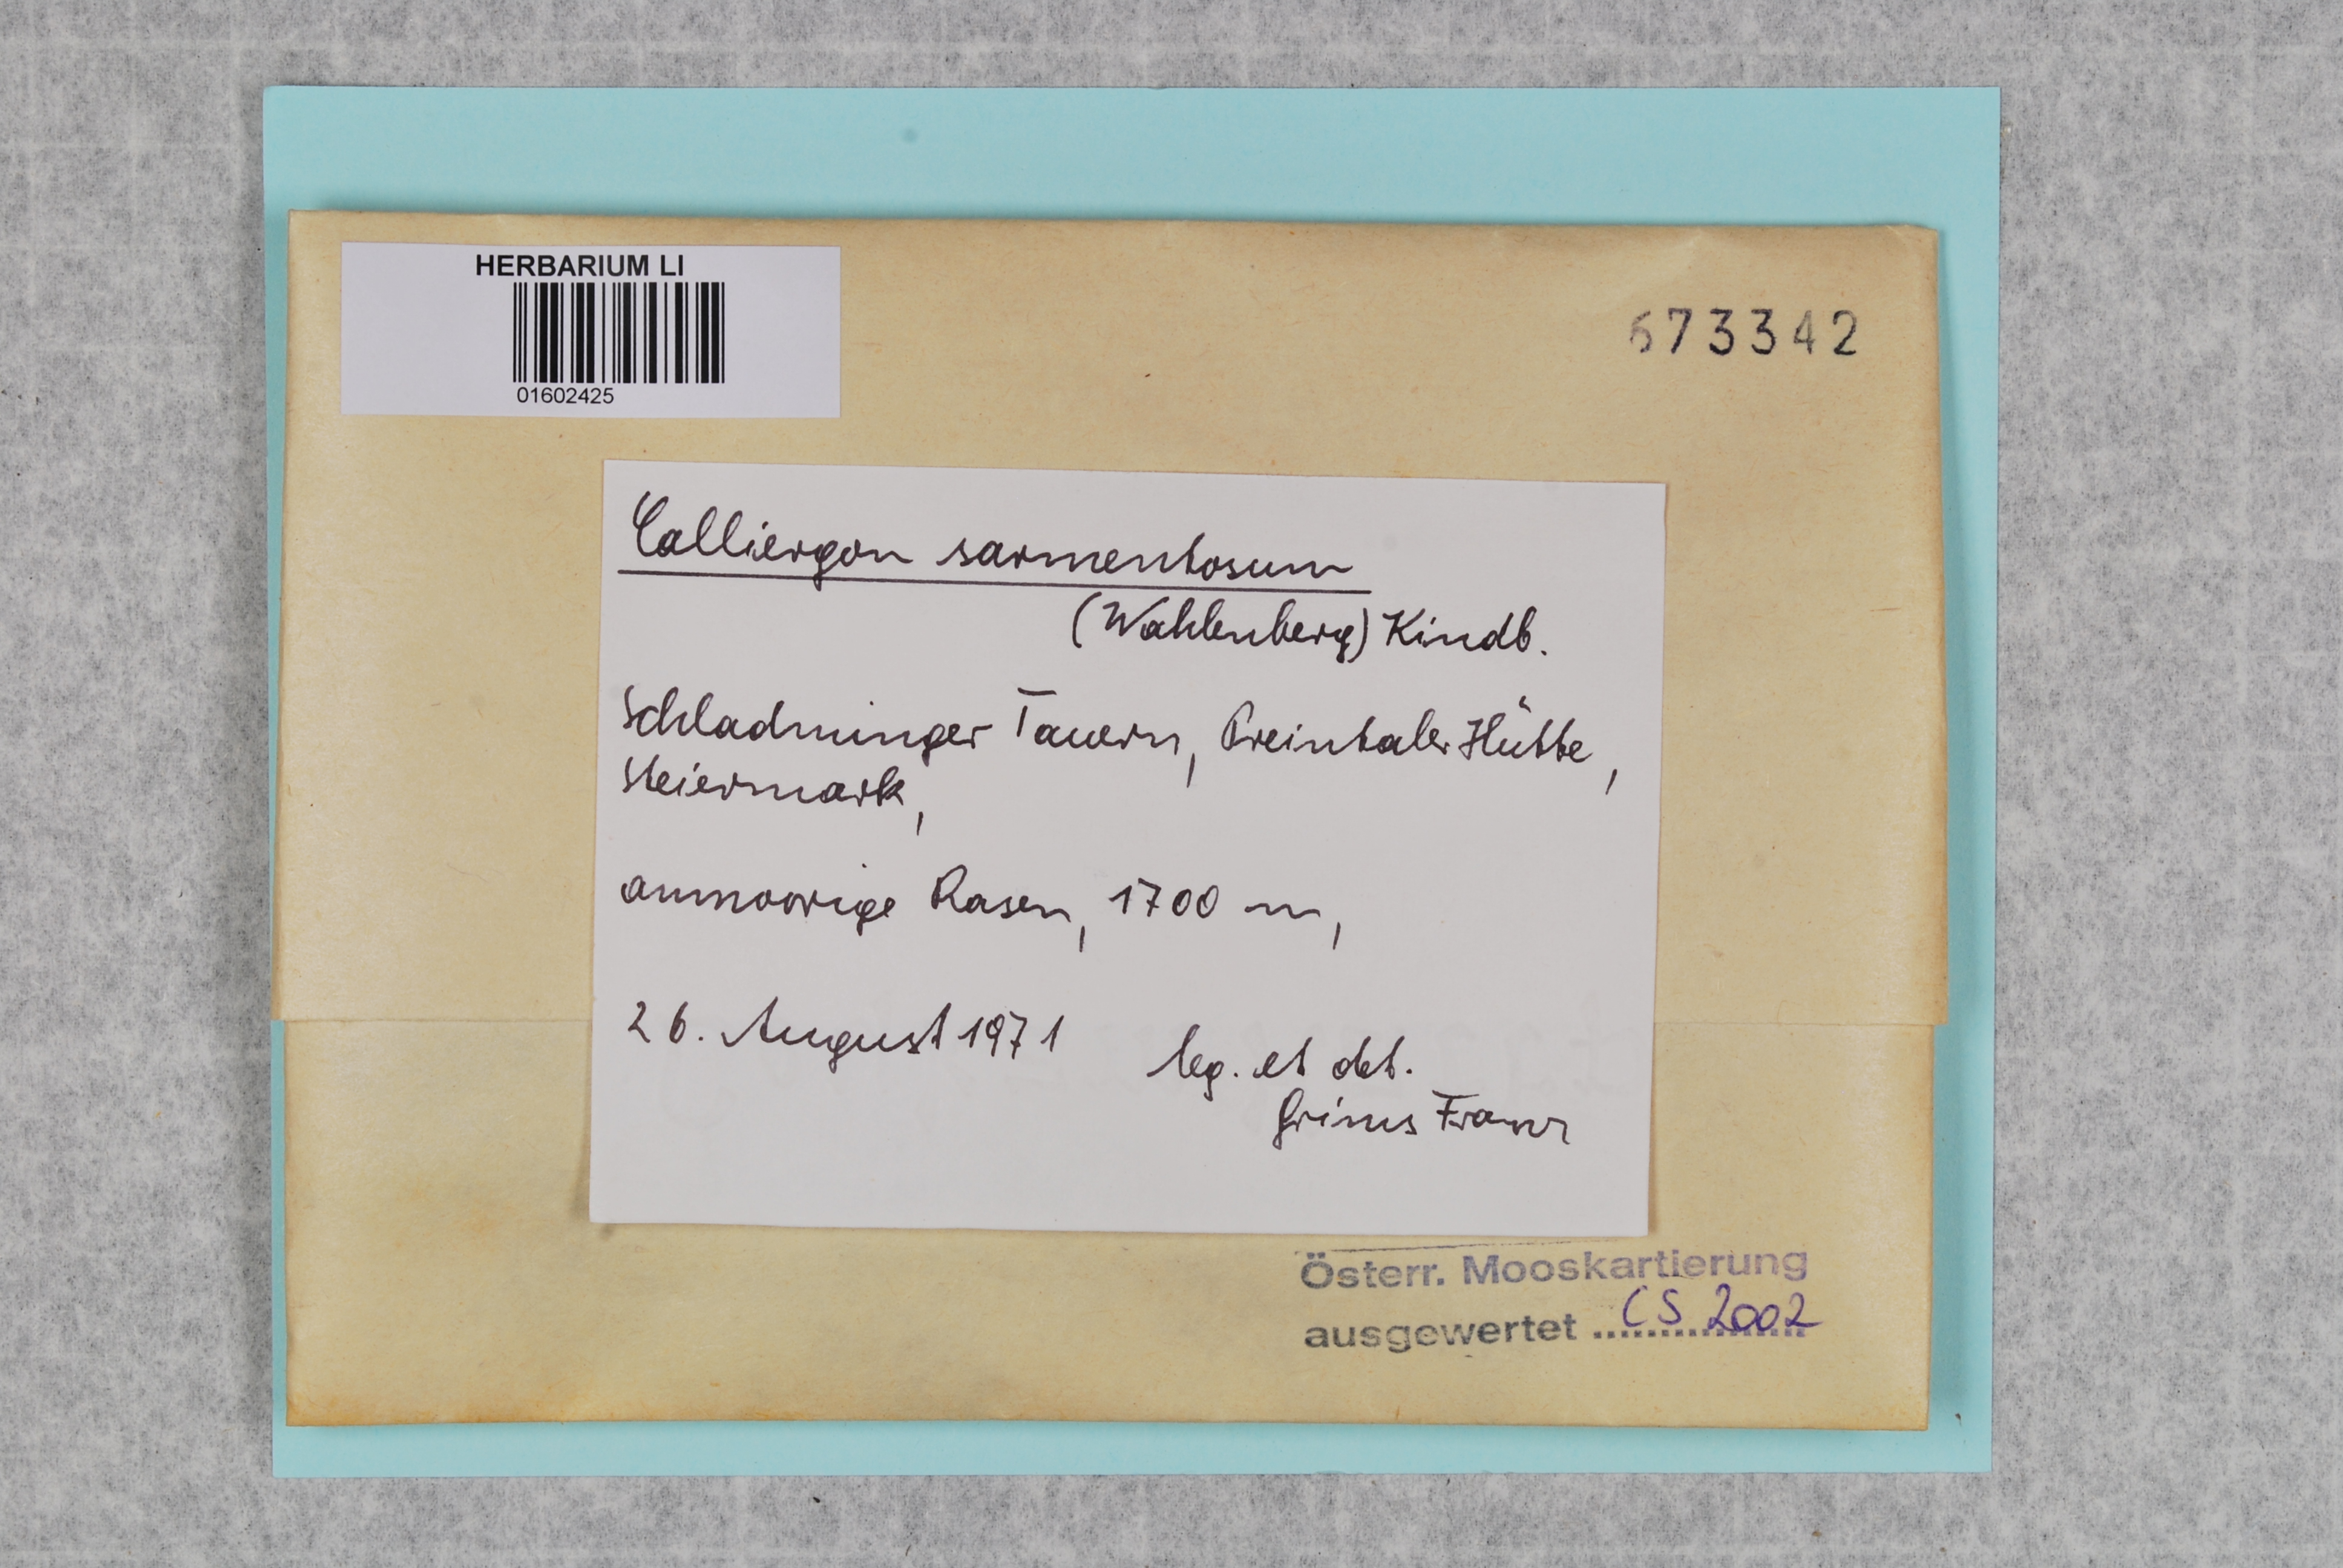 HERBARIUM LI
01602425
673342
Calliergon sarmentosum
(Wahlenberg) Kindb.
Schladminger Tauern, Preintaler Hütte,
Steiermark,
anmoorige Rasen, 1700 m,
26. August 1971
leg. et det.
Grims Franz
Österr. Mooskartierung
ausgewertet ........ CS 2002